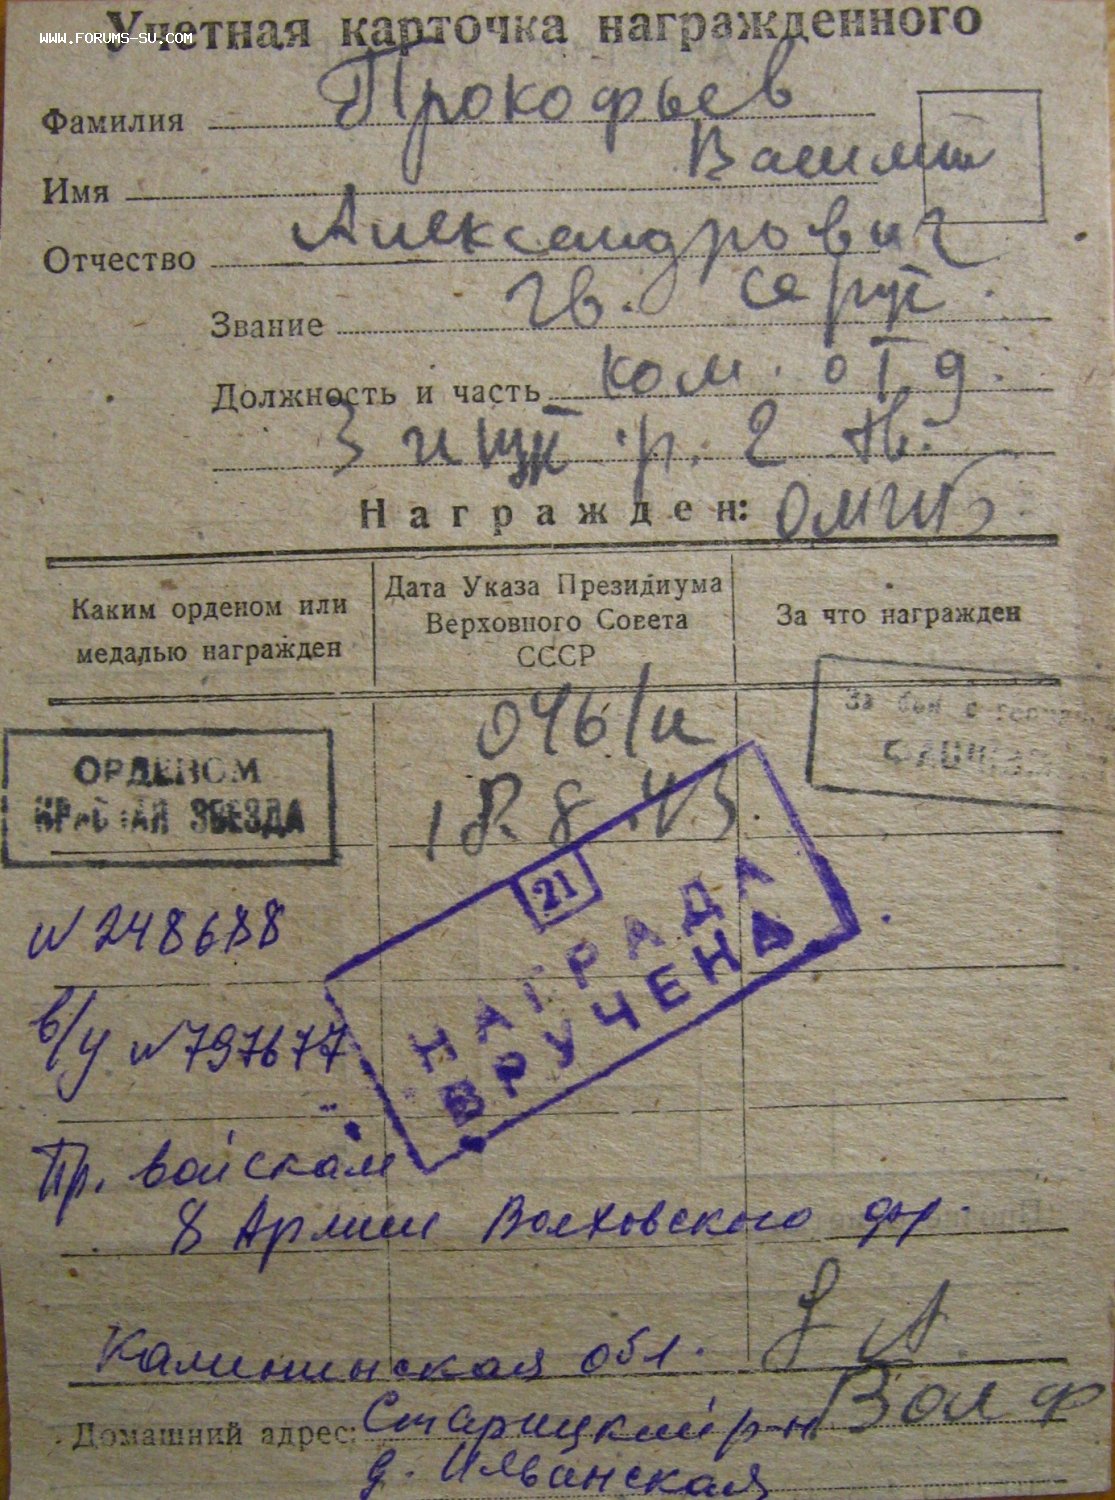 www.FORUMS-SU.com
Учетная карточка награжденного
Фамилия Прокофьев
Имя Василий
Отчество Александрович
Звание гв. серж.
Должность и часть ком. отд.
3 р. 2 гв.
Награжден:
Каким орденом или медалью награжден
Дата Указа Президиума Верховного Совета СССР
За что награжден
ОРДЕНОМ
КРАСНАЯ ЗВЕЗДА
046/н
18.8.43
За бои с
21
НАГРАДА
ВРУЧЕНА
N 248688
в/у N 797677
Пр. войскам
8 Армии Волховского фр.
8 А
Калининская обл. Волф
Домашний адрес: Старицкий р-н
д.